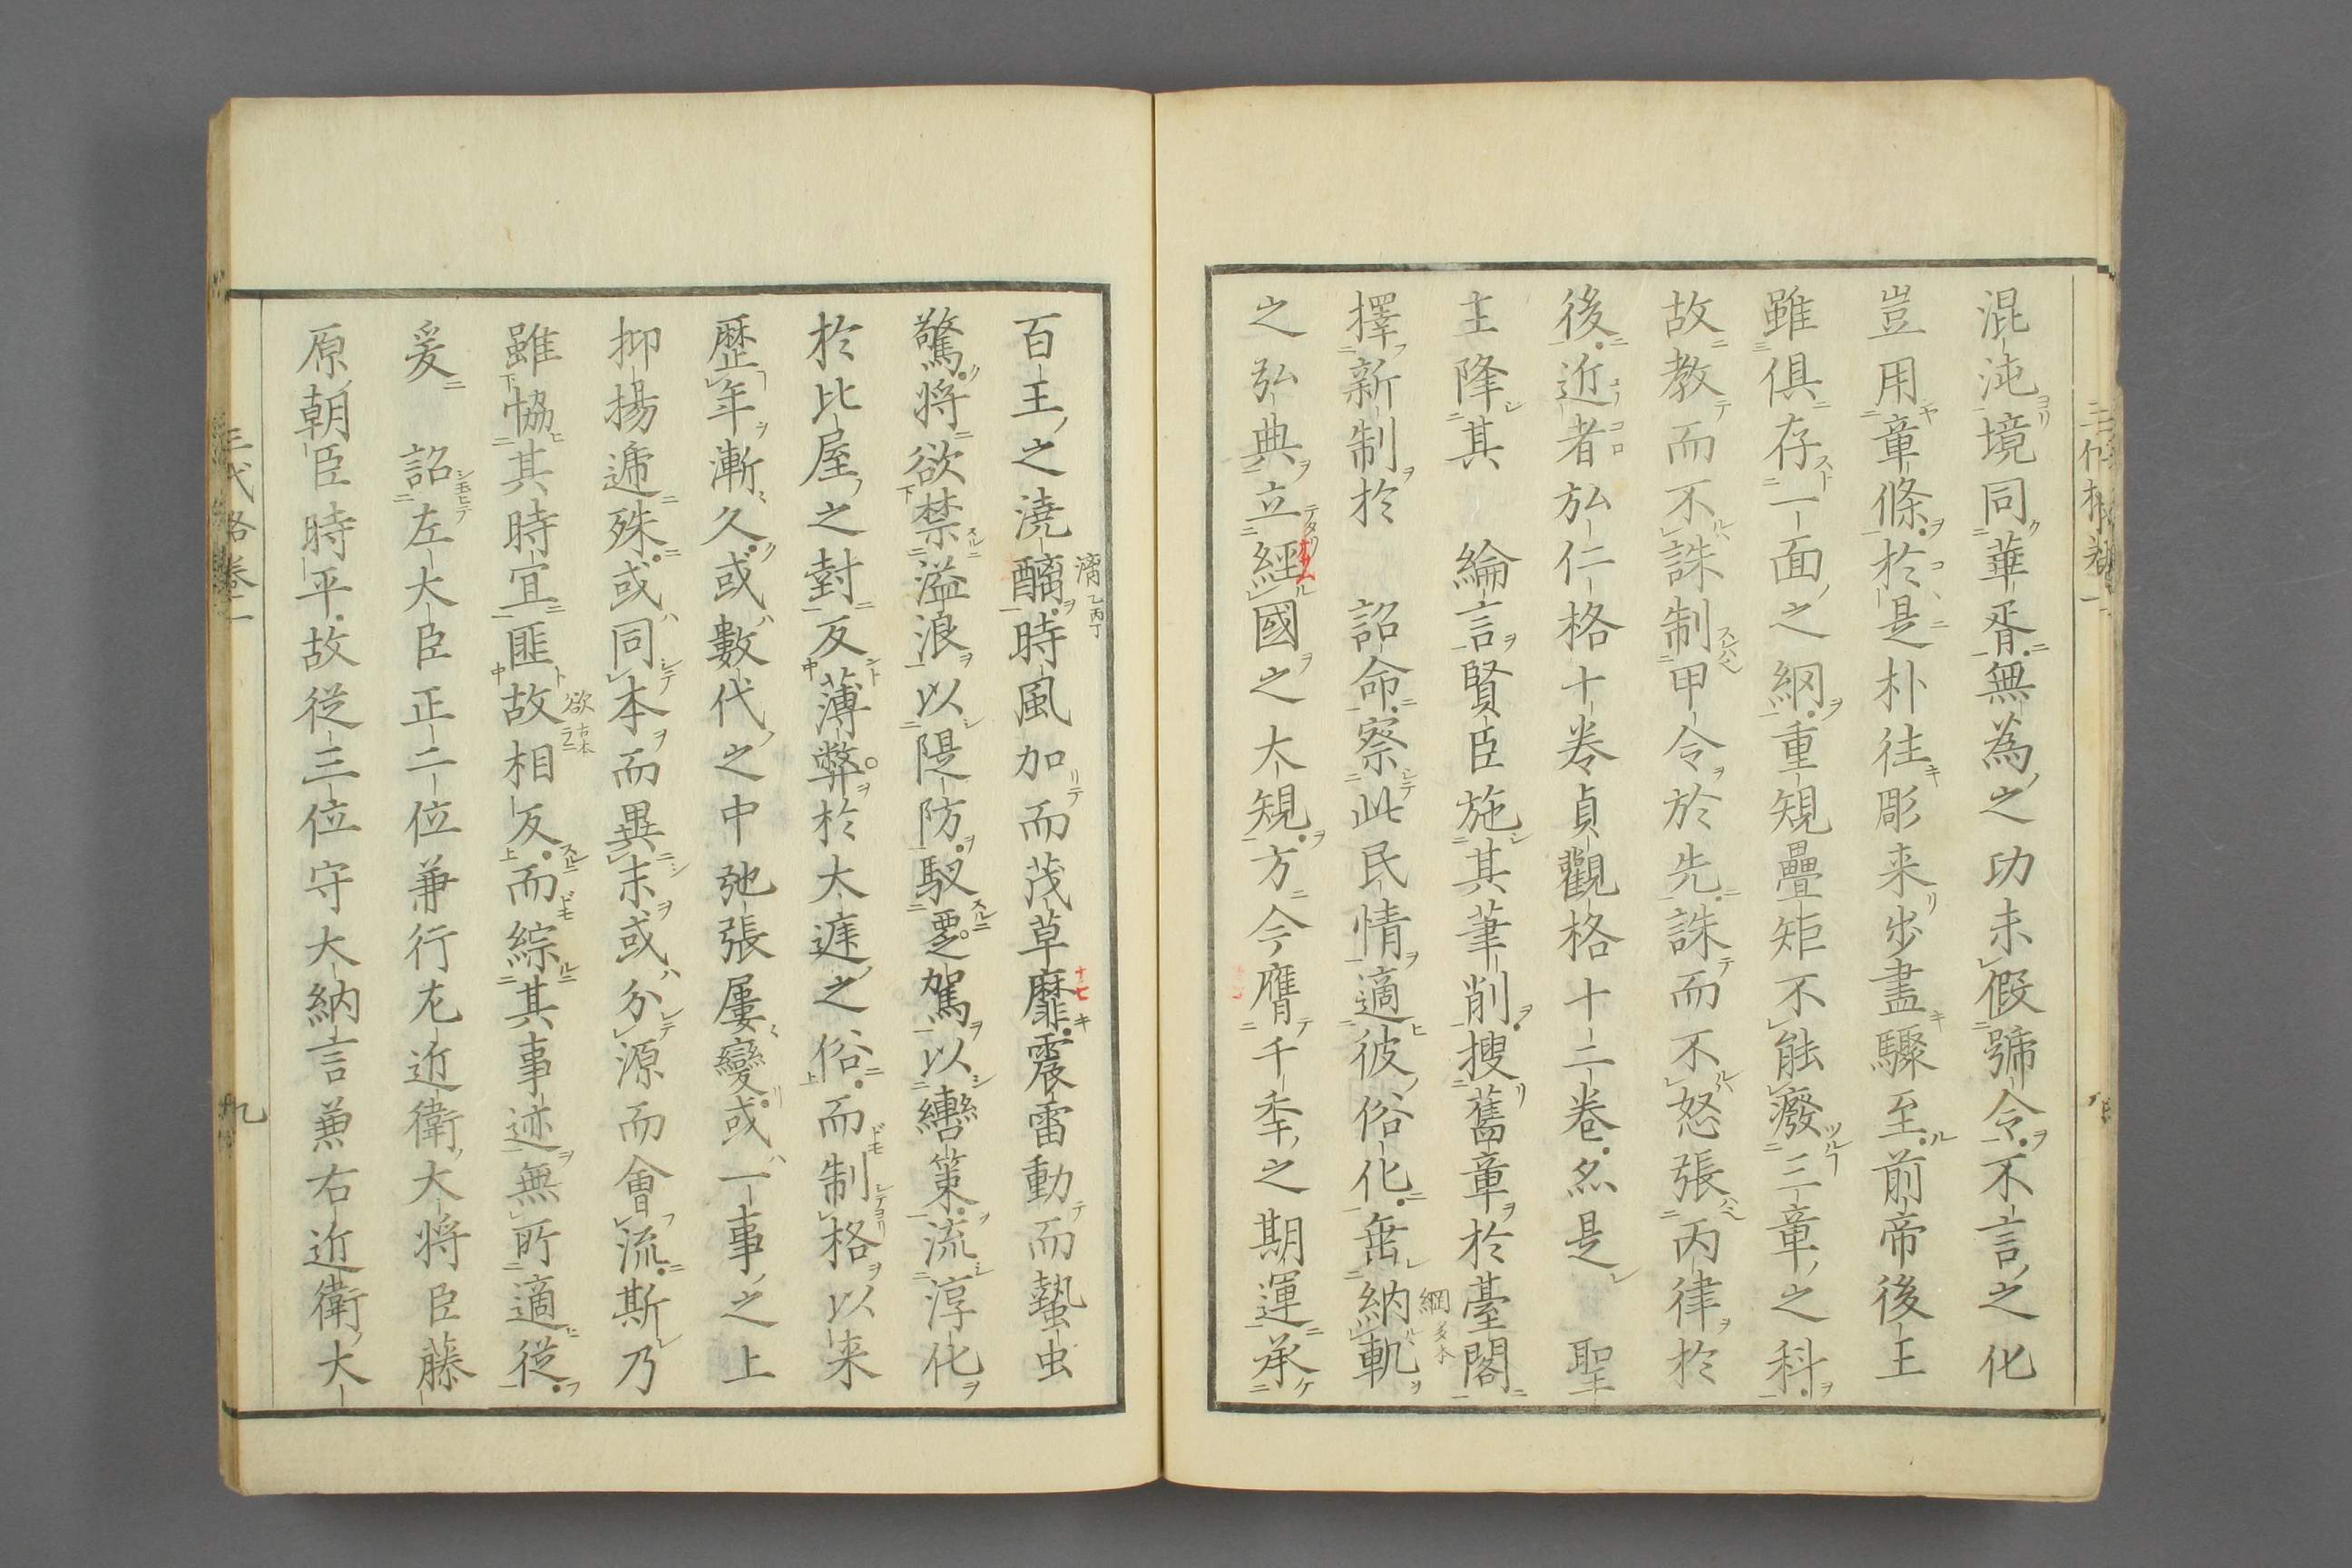 混沌境同華胥無為之功未假號令不言之化
豈用章條於是朴往彫来步盡驟至前帝後王
雖俱存一面之網重規疊矩不能癈三章之科
故教而不誅制甲令於先誅而不怒張丙律於
後近者弘仁格十卷貞觀格十二卷尒是　聖
主降其　綸言賢臣施其筆削搜舊章於臺閣
擇新制於　詔命察此民情適彼俗化垂納軌
之弘典立經國之大規方今膺千季之期運承
百王之澆醨時風加而茂草靡震雷動而蟄虫
驚將欲禁溢浪以隄防馭覂駕以轡策流淳化
於比屋之封反薄弊於大庭之俗而制格以来
歷年漸久或數代之中弛張屢變或一事之上
抑揚遞殊或同本而異末或分源而會流斯乃
雖恊其時宜匪故相反而綜其事迹無所適從
爰　詔左大臣正二位兼行左近衛大将臣藤
原朝臣時平故從三位守大納言兼右近衛大
三代格卷一
九